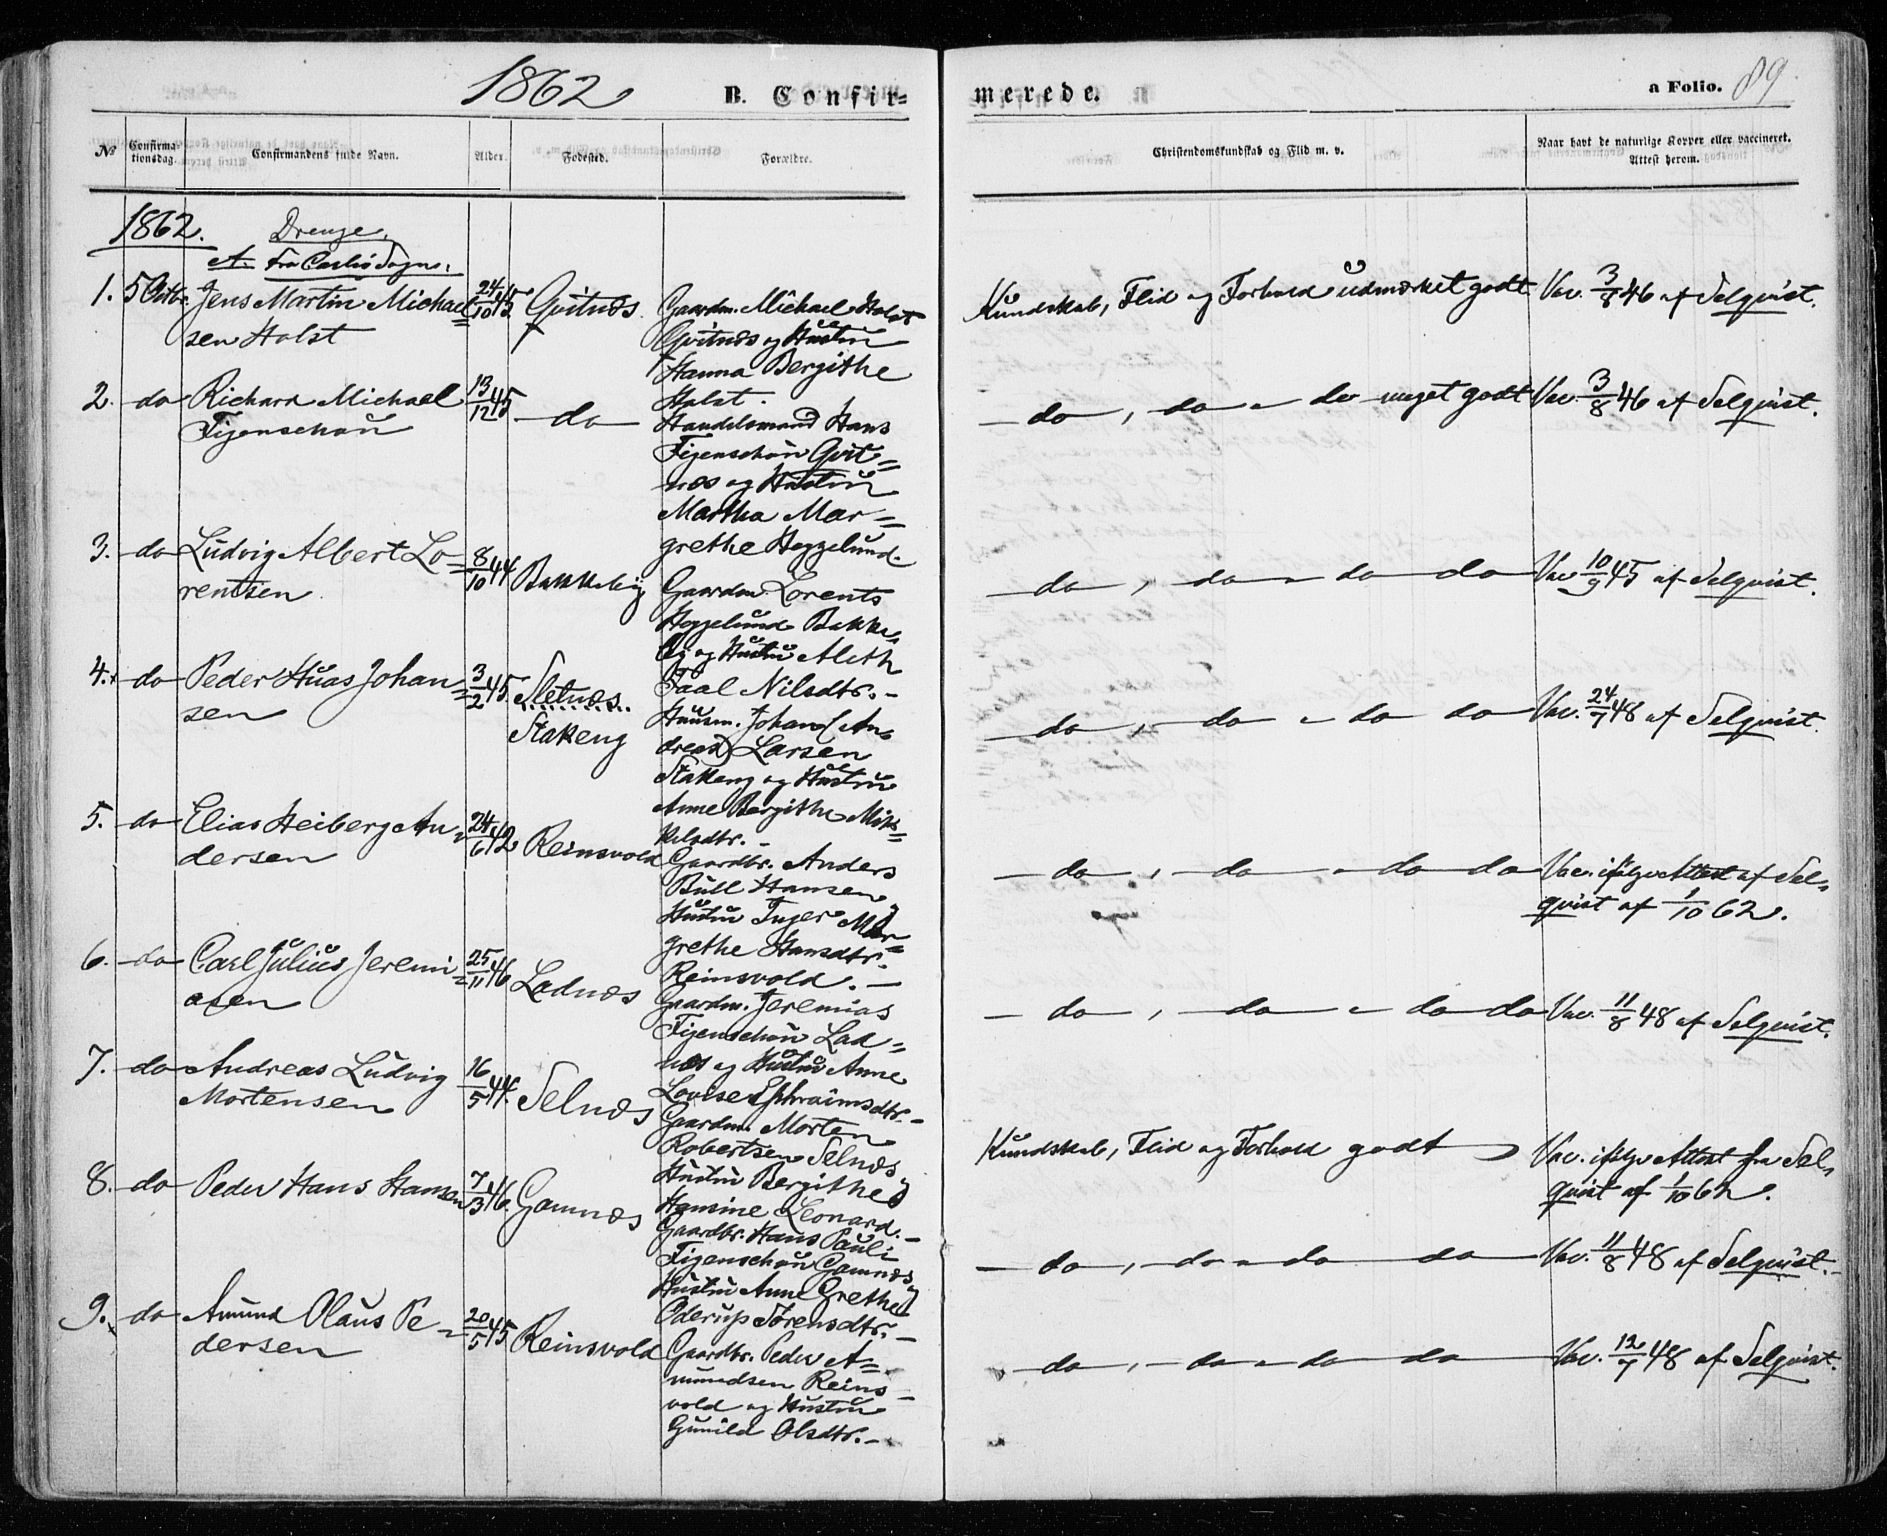 1862 B. Confir=
merede. a Folio. 89
No Confirmationsdag. Confirmandens fulde Navn. Alder. Fødested. Forældre.
Christendomskundskab og Flid m. v. Naar havt de naturlige Kopper eller vaccineret. Attest herom.
1862. Drenge.
A. fra Carlsø Sogn:
1. 5 Octbr. Jens Martin Michael= 24/10 45 Gvitnæs
sen Holst
Gaardm. Michael Holst
Gvitnæs og Hustru
Hanna Bergithe
Holst.
Kundskab, Flid og Forhold udmærket godt Vac. 3/8 46 af Selqvist.
2. do Richard Michael 13/12 45 do
Figenschou
Handelsmand Hans
Figenschou Gvit=
næs og Hustru
Martha Mar=
grethe Heggelund.
do, do " do meget godt Vac. 3/8 46 af Selqvist.
3. do Ludvig Albert Lo= 8/10 44 Bakkeby
rentsen
Gaardm. Lorents
Heggelund Bakke=
by og Hustru Aleth
Faal Nilsdtr.-
do, do " do do Vac. 10/9 45 af Selqvist.
4. do Peder Huas Johan= 3/2 45 Sletnæs.
sen Stakeng
Huusm. Johan (An=
dreas) Larsen
Stakeng og Hustru
Anne Bergithe Mik=
kelsdtr. -
do, do " do do Vac. 24/7 48 af Selqvist.
5. do Elias Heiberg An= 24/6 42 Reinsvold
dersen
Gaardbr. Anders
Bull Hansen
Hustru Inger Mar=
grethe Hansdtr.
Reinsvold. -
do, do " do do Vac. ifølge Attest af Sel=
qvist af 1/10 62.
6. do Carl Julius Jeremi= 25/11 46 Ladnæs
asen
Gaardm. Jeremias
Figenschou Lad=
næs og Hustru Anne
Lovise Ephraimsdtr.-
do, do " do do Vac. 11/8 48 af Selqvist.
7. do Andreas Ludvig 16/5 44. Selnæs
Mortensen
Gaardm. Morten
Robertsen Selnæs
Hustru Bergithe
Hansine Leonard.-
Kundskab, Flid og Forhold godt Vac. ifølge Attest fra Sel=
qvist af 1/10 62.
8. do Peder Hans Hansen 7/3 46. Gamnæs
Gaardbr. Hans Pauli
Figenschou Gamnæs
Hustru Anne Grethe
Oderup Sørensdtr.-
do, do " do do Vac. 11/8 48 af Selqvist.
9. do Amund Olaus Pe= 20/5 45 Reinsvold
dersen
Gaardbr. Peder A=
mundsen Reins=
vold og Hustru
Gunild Olsdtr.-
do, do " do do Vac. 12/7 48 af Selqvist.